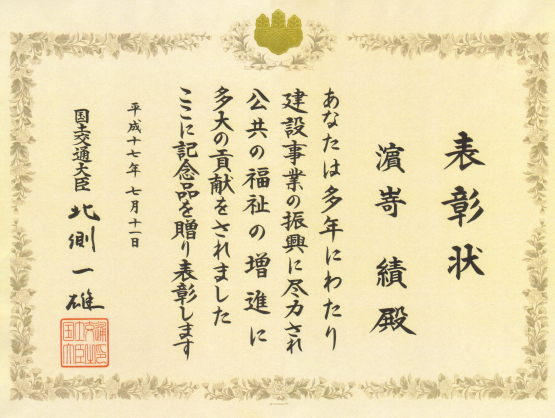 表彰状
濵嵜績殿
あなたは多年にわたり
建設事業の振興に尽力され
公共の福祉の増進に
多大の貢献をされました
ここに記念品を贈り表彰します
平成十七年七月十一日
国土交通大臣 北側一雄
国土交通大臣之印